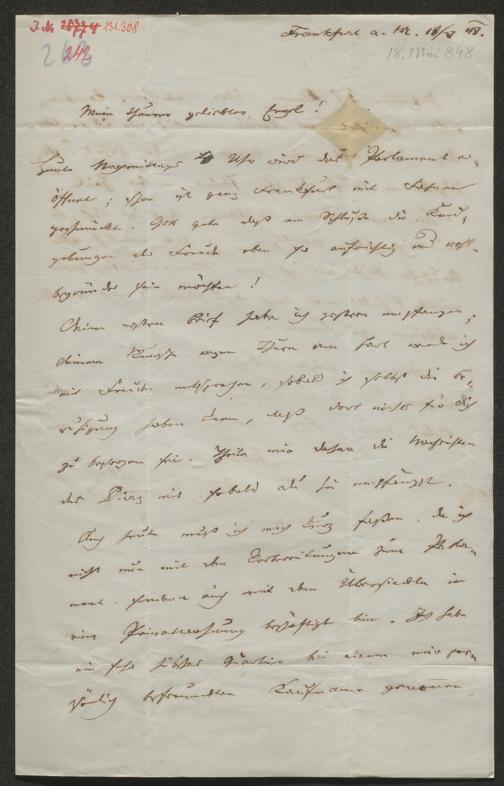 I.N. 131.308
242
Frankfurt a. M. 18/5 48.
18. Mai 848
Mein theurer geliebter Engel!
Heute Nachmittags Uhr wird das Parlament er-
öffnet; schon ist ganz Frankfurt mit Fahnen
geschmückt. Gott gebe daß am Schluße die Kund-
gebungen der Freude eben so aufrichtig und wohl-
begründet sein möchten!
Deinen ersten Brief habe ich gestern empfangen;
deinem Wunsche wegen werde ich
mit Freude entsprechen, sobald ich selbst die Be-
ruhigung haben kann, daß dort nichts für Dich
zu besorgen sei. Theile mir daher die Nachrichten
des mit sobald als Du sie empfängst.
Auch heute muß ich mich kurz fassen, da ich
nicht nur mit den Vorbereitungen zum Parla-
ment, sondern auch mit dem Übersiedeln in
eine Privatwohnung beschäftigt bin. Ich habe
ein sehr hübsches Quartier bei einem mir per-
sönlich befreundeten Kaufmanne genommen